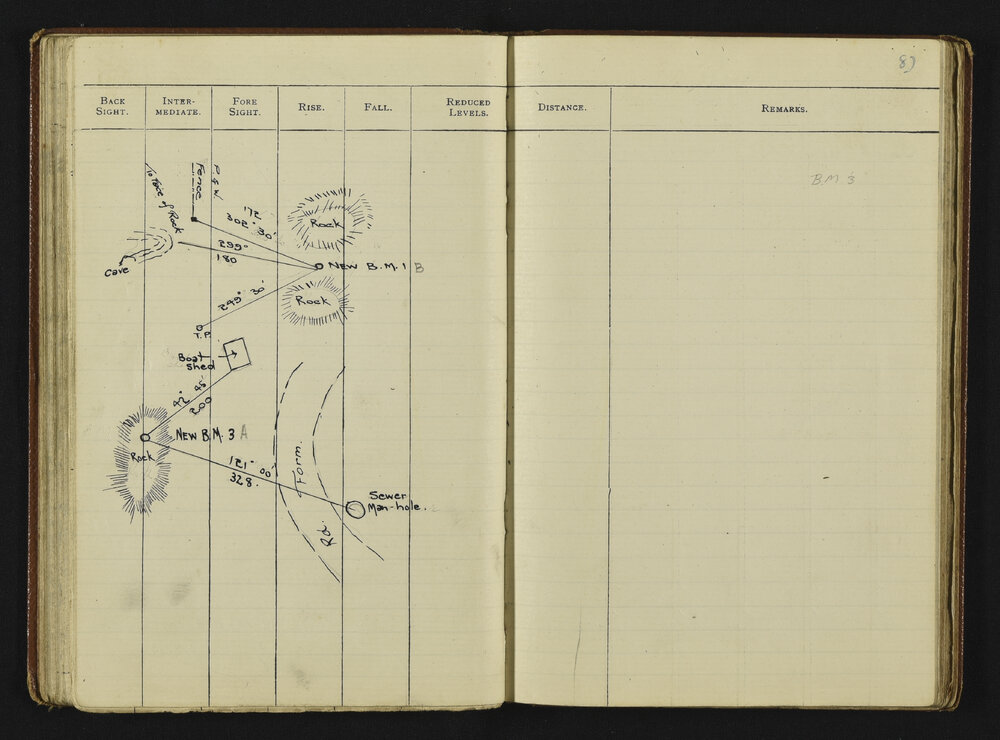 8)
BACK SIGHT.
INTER-MEDIATE.
FORE SIGHT.
RISE.
FALL.
REDUCED LEVELS.
DISTANCE.
REMARKS.
B.M 3
To Face of Rock
Fence
P. & W.
172
302° 30'
Rock
299°
180
Cave
NEW B.M. 1 B
249° 30'
Rock
T.P.
Boat
shed
42° 45'
200
NEW B.M. 3 A
Rock
121° 00'
328.
Form.
Rd.
Sewer
Man-hole.